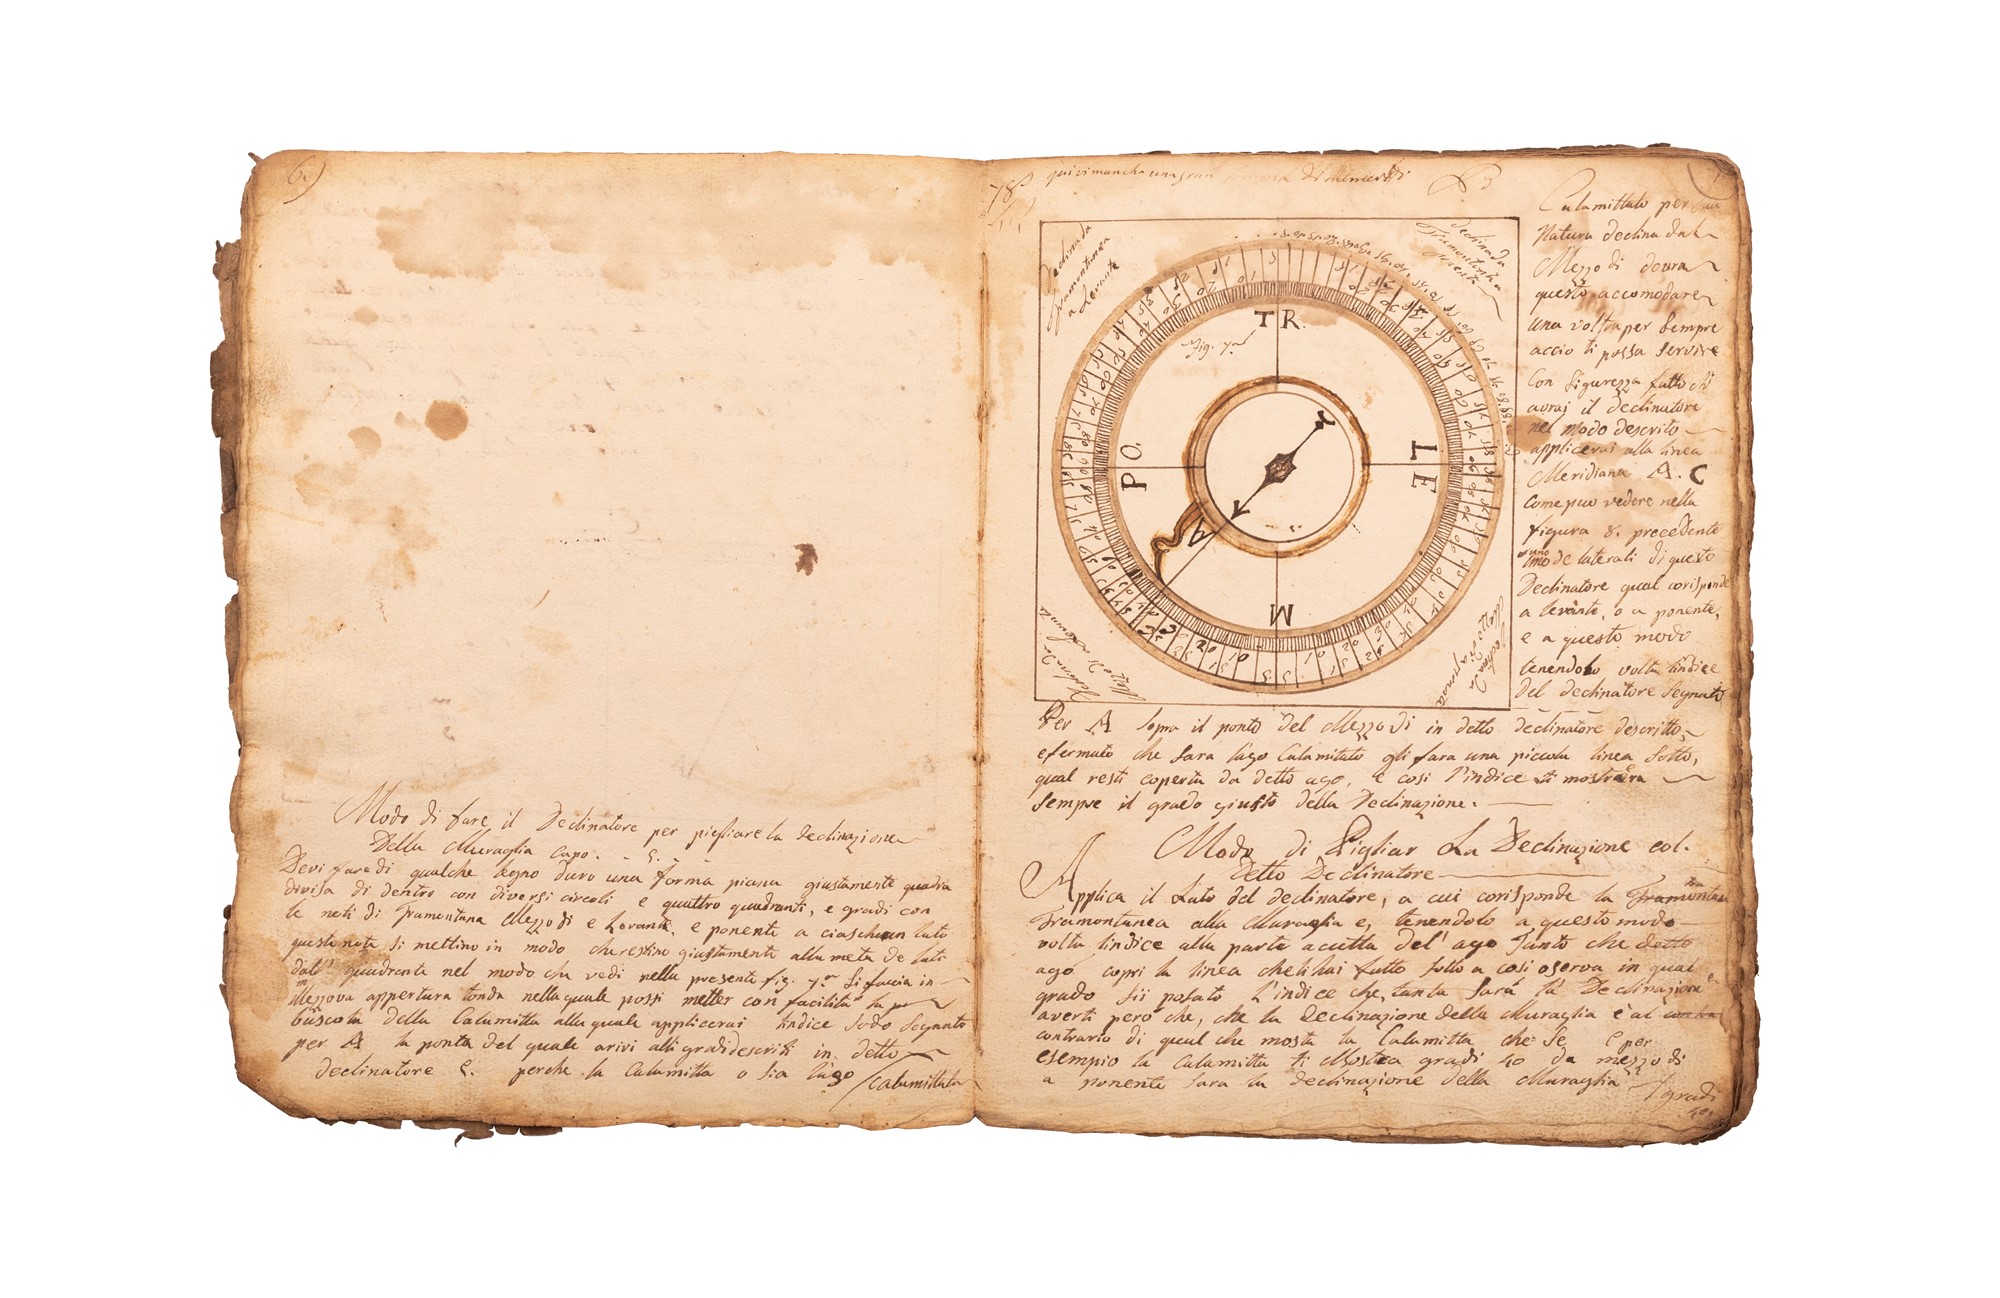 6.)
Modo di fare il Declinatore per pigliare la declinazione
Della Muraglia Capo. - 5. -
Devi fare di qualche legno duro una forma piana giustamente quadra
divisa di dentro con diversi circoli e quattro quadranti, e gradi con
le noti di Tramontana Mezzo di e Levante, e ponente a ciaschun lato
queste note si mettino in modo che restino giustamenti alla meta de lati
dal quadrante nel modo che vedi nella presente fig. 7a Si faccia in
Mezzo va appertura tonda nella quale possi metter con facilità la
buscola della Calamitta alla quale applicerai l'indice sodo Segnato
per A la ponta del quale arivi alli gradi descriti in detto
declinatore E. perche la Calamitta o sia lago /Calamittato
78
qui vi mancha una gran di numeri
Declina da
Tramontanea
a Levante
Declina da
Tramontana
Fig. 7a
TR.
PO.
LE
M
A
Declina da
Mezzo di a Levante
Declina da
Mezzo di a ponente
Calamittato per Sua
Natura declina dal
Mezzo di dovra
questo accomodare
una volta per Sempre
accio ti possa Servire
Con Sigurezza fatto chi
avrai il declinatore
nel modo descrito
applicerai alla linea
Meridiana A. C
Come puo vedere nella
figura 8. precedente
uno de laterali di questo
Declinatore qual corisponde
a levante, o a ponente,
e a questo modo
tenendolo volta lindice
del declinatore Segnato
Per A Sopra il ponto del Mezzo di in detto declinatore descritto,
e fermato che Sara lago Calamitato gli fara una piccola linea Sotto,
qual resti coperta da detto ago, e cosi l'indice ti mostrera
Sempre il grado giusto della Declinazione.
Modo di Pigliar La Declinazione col.
Detto Declinatore
Applica il Lato del declinatore, a cui corisponde la
Tramontanea alla Muraglia e, tenendolo a questo modo
volta lindice alla parte acutta del' ago Tanto che detto
ago copri la linea che li hai fatto Sotto a cosi oserva in qual
grado sii posato l'indice che, tanta Sará la Declinazione
averti però che, che la Declinazione della Muraglia è al contra
contrario di quel che mosta la Calamitta che Se e per
esempio la Calamitta ti Mostra gradi 40 da mezzo di
a ponente Sara la declinazione della Muraglia
/gradi
40.